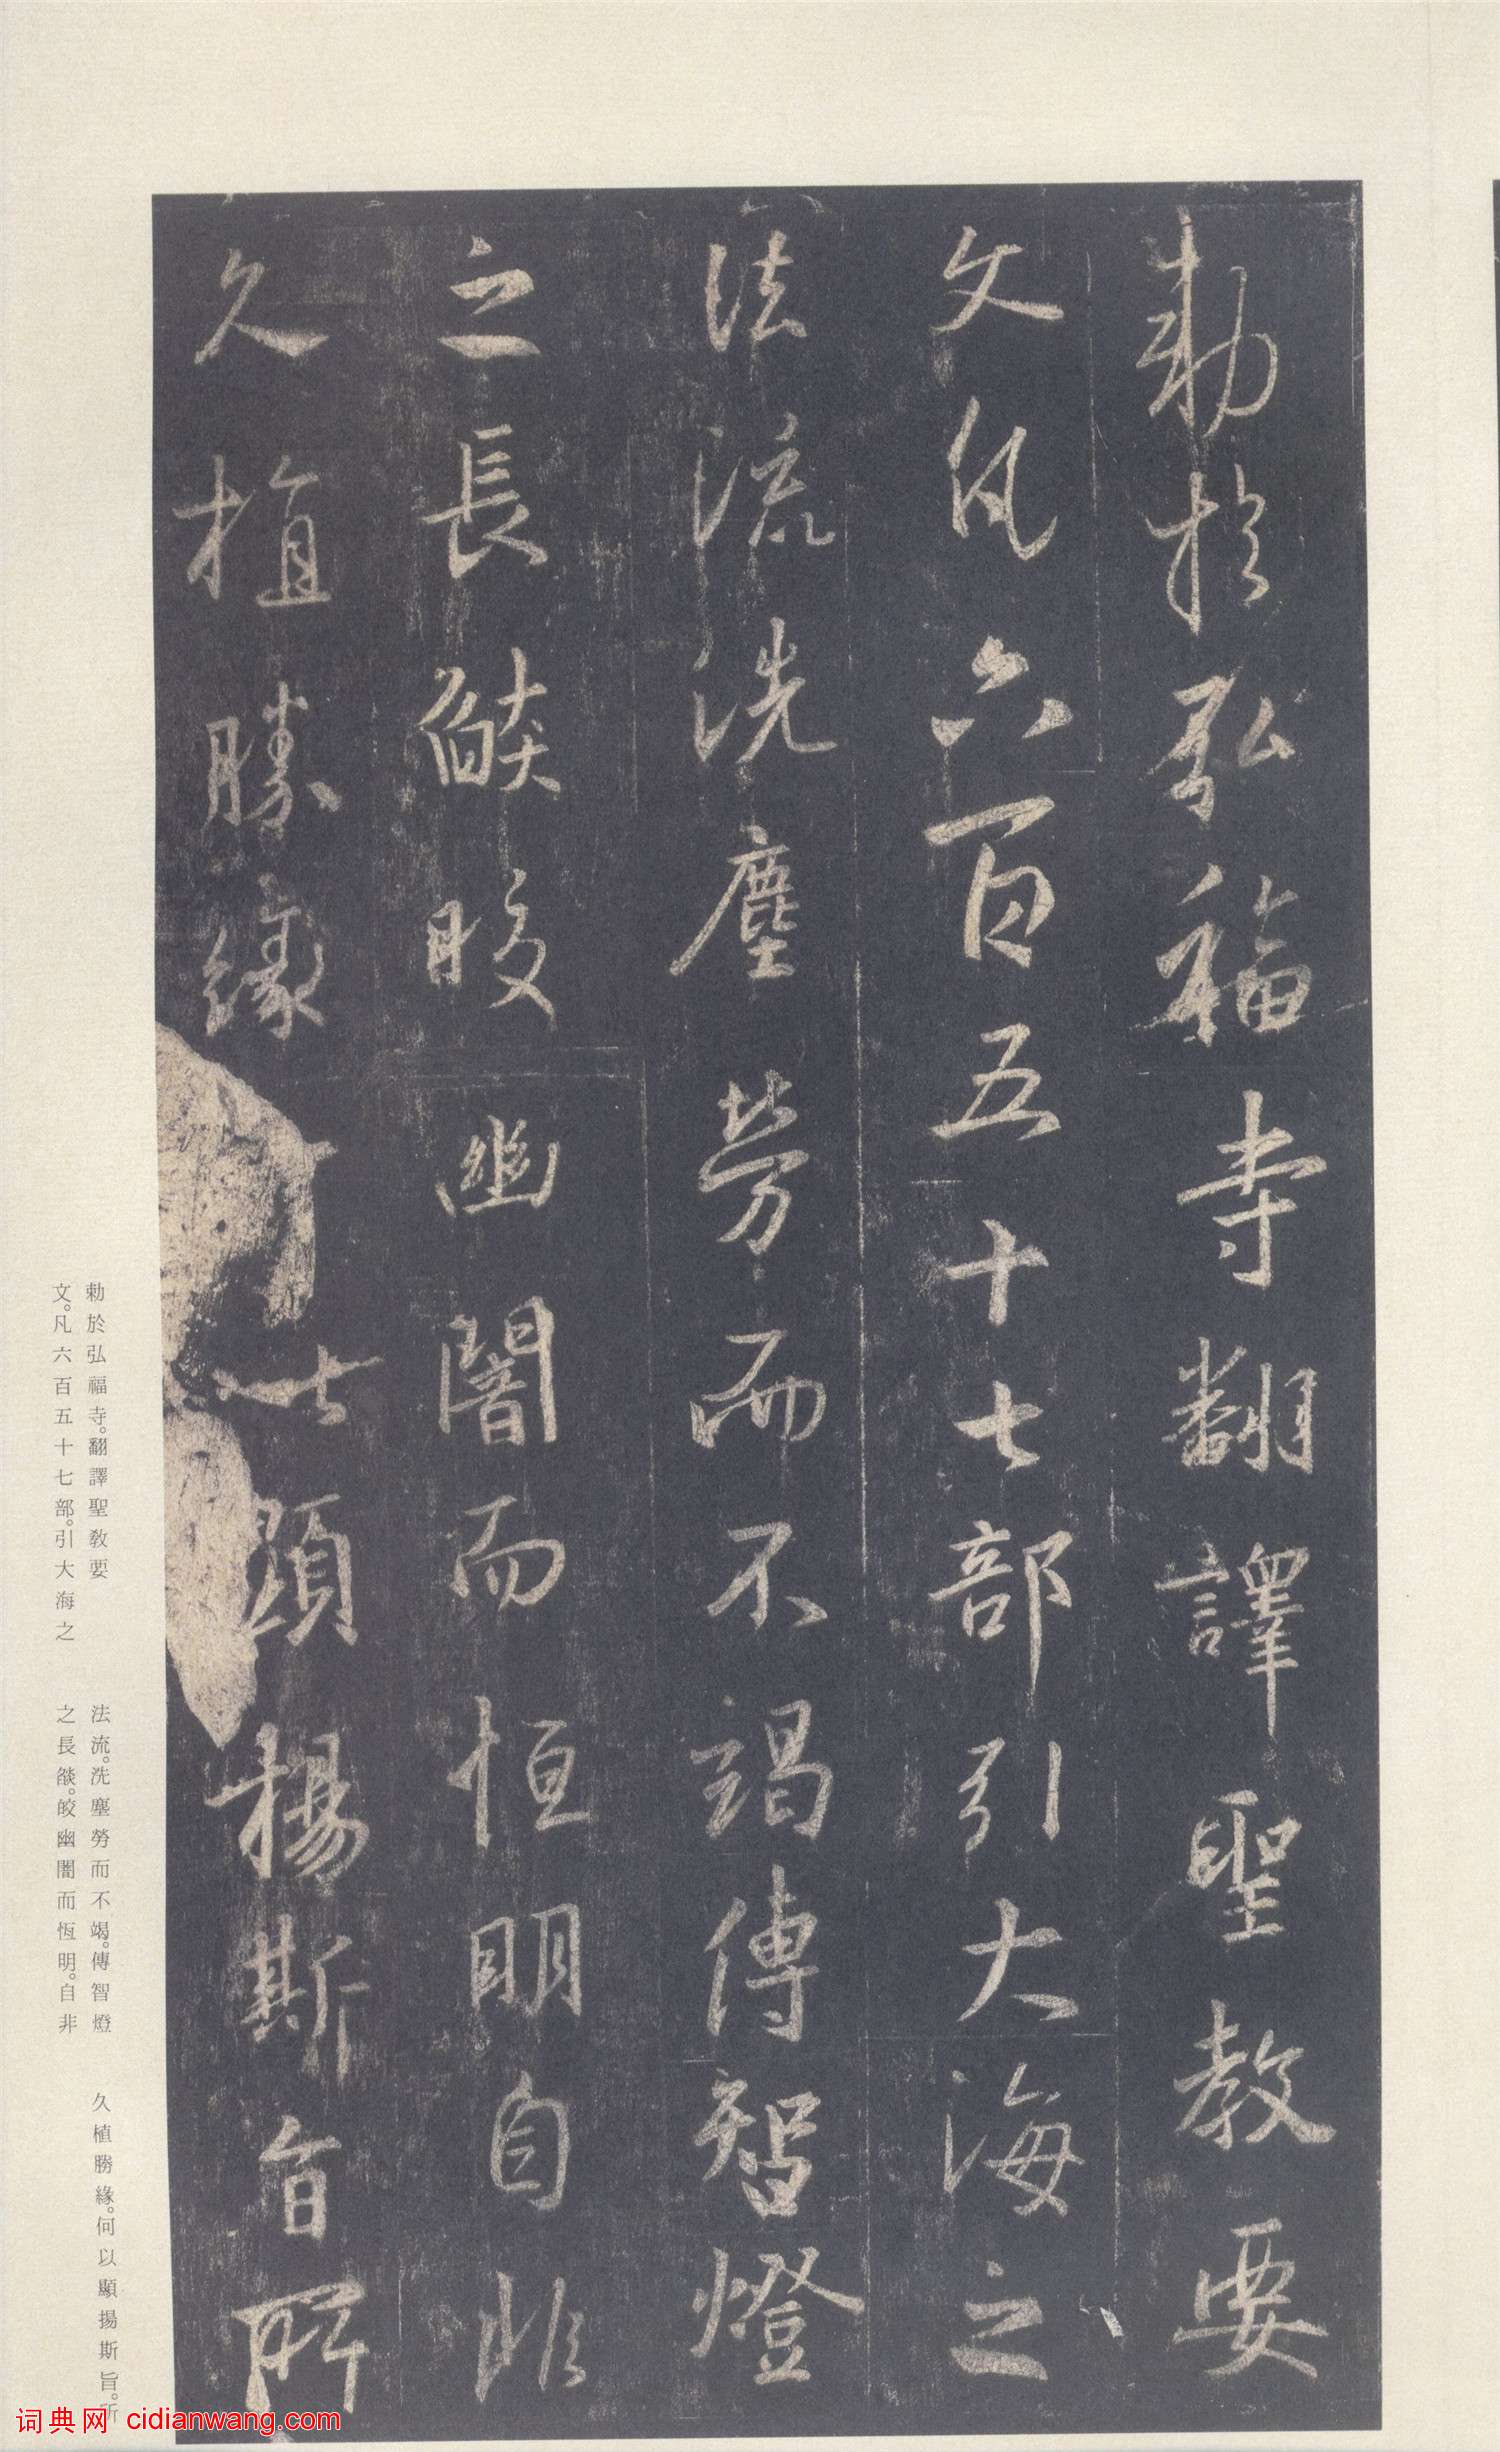 勅於弘福寺翻譯聖教要
文凡六百五十七部引大海之
法流洗塵勞而不竭傳智燈
之長燄皎幽闇而恒明自非
久植勝緣以顯揚斯旨所
勅於弘福寺。翻譯聖教要
文。凡六百五十七部。引大海之
法流。洗塵勞而不竭。傳智燈
之長燄。皎幽闇而恆明。自非
久植勝緣。何以顯揚斯旨。所
词典网 cidianwang.com